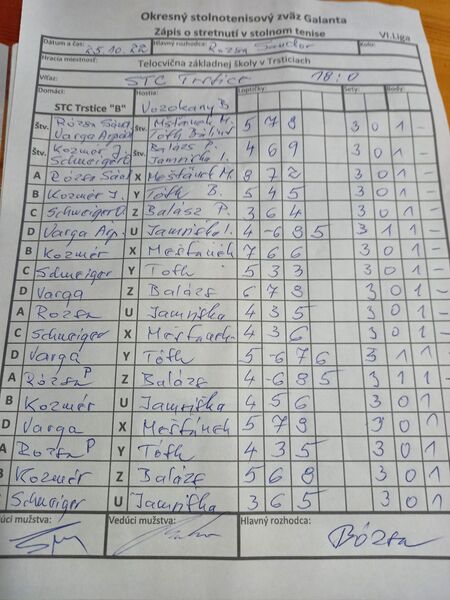 Okresný stolnotenisový zväz Galanta
Zápis o stretnutí v stolnom tenise
VI.Liga
Dátum a čas: 25.10.22 Hlavný rozhodca: Rózsa Sándor Kolo:
Hracia miestnosť: Telocvičňa základnej školy v Trsticiach
Víťaz: STC Trstice 18:0
Domáci: Hostia: Loptičky: Sety: Body:
STC Trstice "B" Vozokany B
Štv. Rózsa Sán Štv. Meštánek M. 5 7 8 3 0 1 -
Varga Arpád Tóth Bálint
Štv. Kozmér J. Štv. Balázs P. 4 6 9 3 0 1 -
Schweiger Jamriška I.
A Rózsa Sán X Meštánek M. 8 7 2 3 0 1 -
B Kozmér J. Y Tóth B. 5 4 5 3 0 1 -
C Schweiger Z Balász P. 3 6 4 3 0 1 -
D Varga Arp. U Jamriška I. 4 -6 9 5 3 1 -
B Kozmér X Meštánek 7 6 6 3 0 1 -
C Schweiger Y Tóth 5 3 3 3 0 1 -
D Varga Z Balázs 6 7 8 3 0 1 -
A Rozsa U Jamriška 4 3 5 3 0 1 -
C Schweiger X Meštánek 4 3 6 3 0 1 -
D Varga Y Tóth 5 -6 7 6 3 1 1
A Rózsa P Z Balázs 4 -6 8 5 3 1 1 -
B Kozmér U Jamriška 4 5 6 3 0 1
D Varga X Meštánek 5 7 9 3 0 1
A Rozsa P Y Tóth 4 3 5 3 0 1
B Kozmér Z Balázs 5 6 8 3 0 1
Schweiger U Jamriška 3 6 5 3 0 1
Vedúci mužstva: Vedúci mužstva: Hlavný rozhodca:
Rózsa